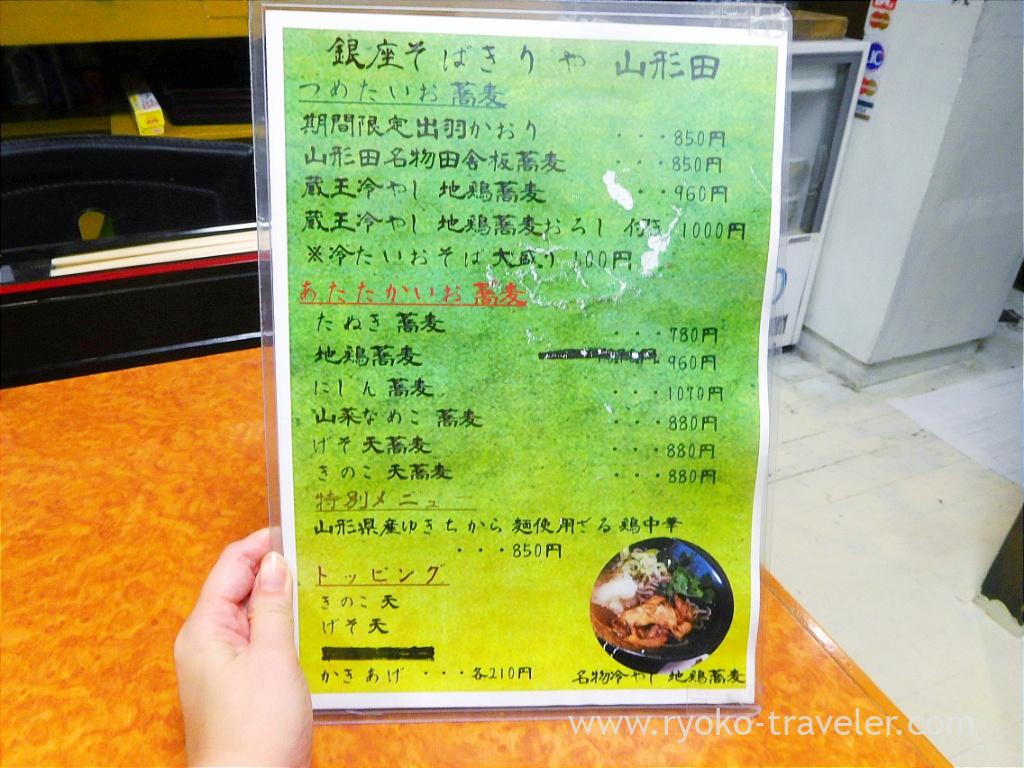 銀座そばきりや 山形田
つめたいお蕎麦
期間限定出羽かおり ・・・850円
山形田名物田舎板蕎麦 ・・・850円
蔵王冷やし 地鶏蕎麦 ・・960円
蔵王冷やし 地鶏蕎麦おろし 付き 1000円
※冷たいおそば 大盛り 100円
あたたかいお蕎麦
たぬき 蕎麦 ・・・780円
地鶏蕎麦 ・・・960円
にしん 蕎麦 ・・・1070円
山菜なめこ 蕎麦 ・・・880円
げそ 天蕎麦 ・・・880円
きのこ 天蕎麦 ・・・880円
特別メニュー
山形県産ゆきちから 麺使用ざる 鶏中華
・・・850円
トッピング
きのこ 天
げそ 天
かきあげ ・・・各210円
名物冷やし 地鶏蕎麦
www.ryoko-traveler.com